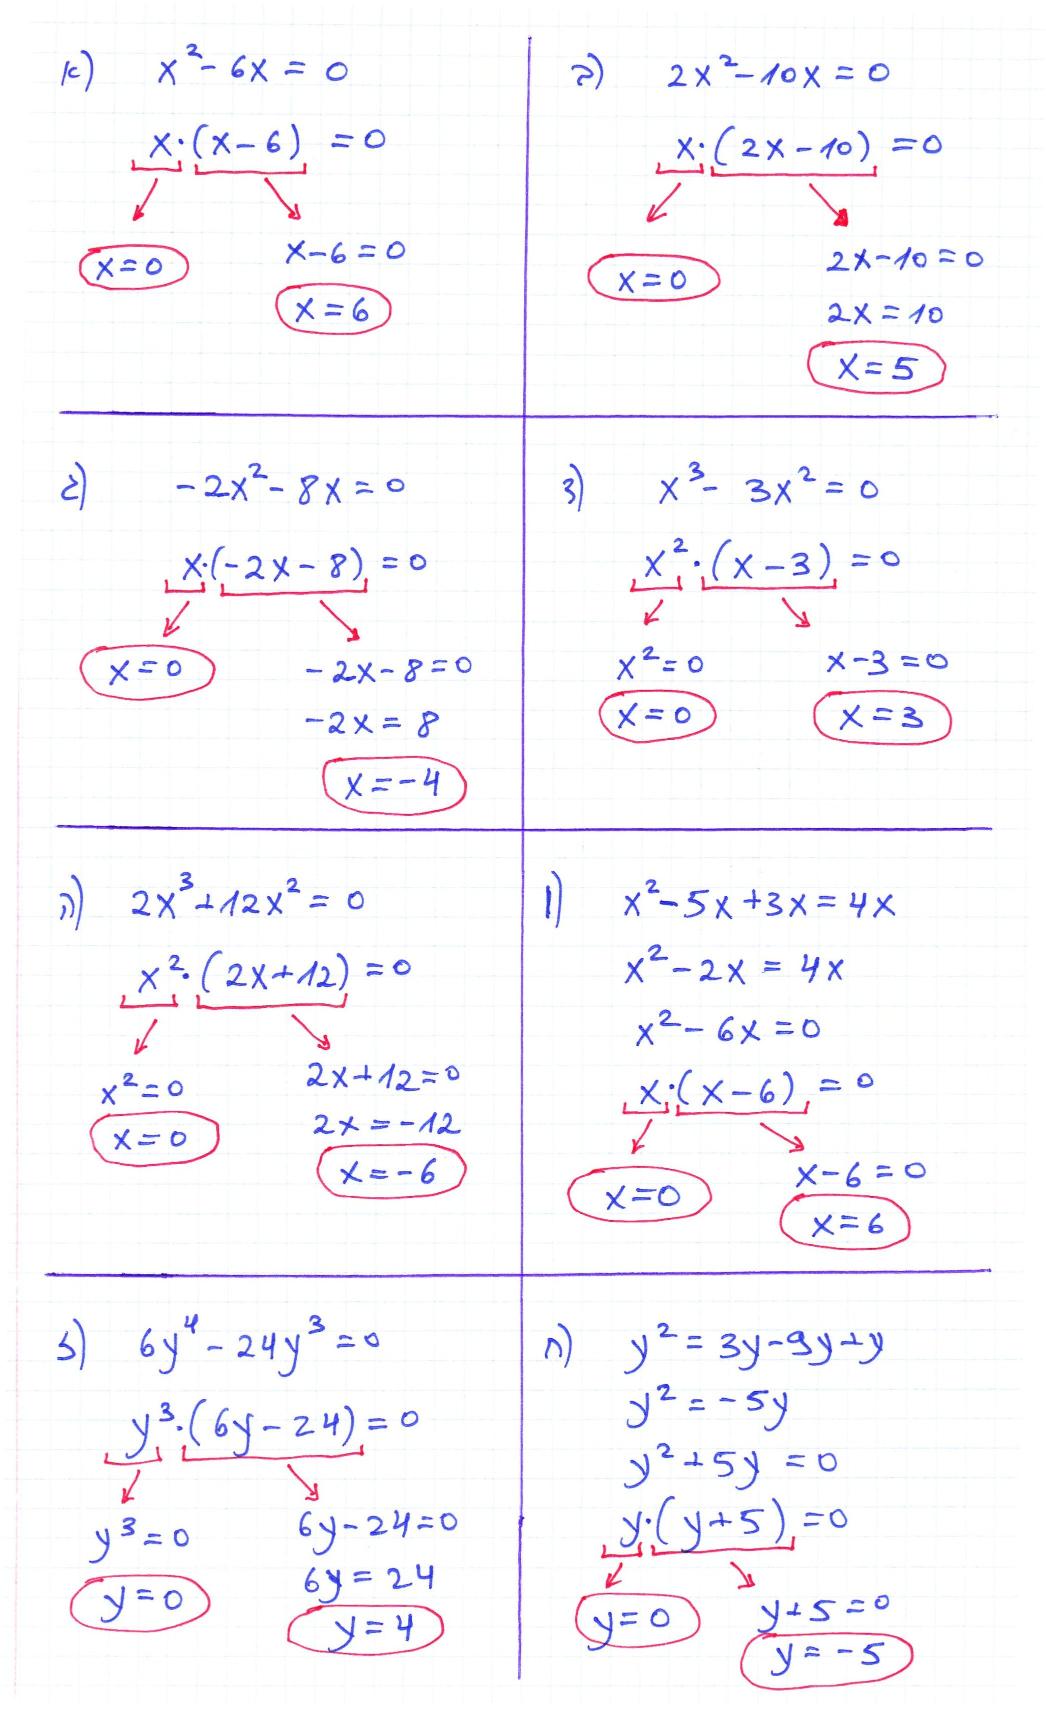 א) x² - 6x = 0
x·(x-6) = 0
x=0
x-6=0
x=6
ב) 2x² - 10x = 0
x·(2x-10) = 0
x=0
2x-10=0
2x=10
x=5
ג) -2x² - 8x = 0
x·(-2x-8) = 0
x=0
-2x-8=0
-2x=8
x=-4
ד) x³ - 3x² = 0
x²·(x-3) = 0
x²=0
x=0
x-3=0
x=3
ה) 2x³+12x² = 0
x²·(2x+12) = 0
x²=0
x=0
2x+12=0
2x=-12
x=-6
ו) x²-5x+3x=4x
x²-2x = 4x
x²-6x=0
x·(x-6) = 0
x=0
x-6=0
x=6
ז) 6y⁴ - 24y³ = 0
y³·(6y-24) = 0
y³=0
y=0
6y-24=0
6y=24
y=4
ח) y² = 3y-9y+y
y² = -5y
y²+5y = 0
y·(y+5) = 0
y=0
y+5=0
y=-5